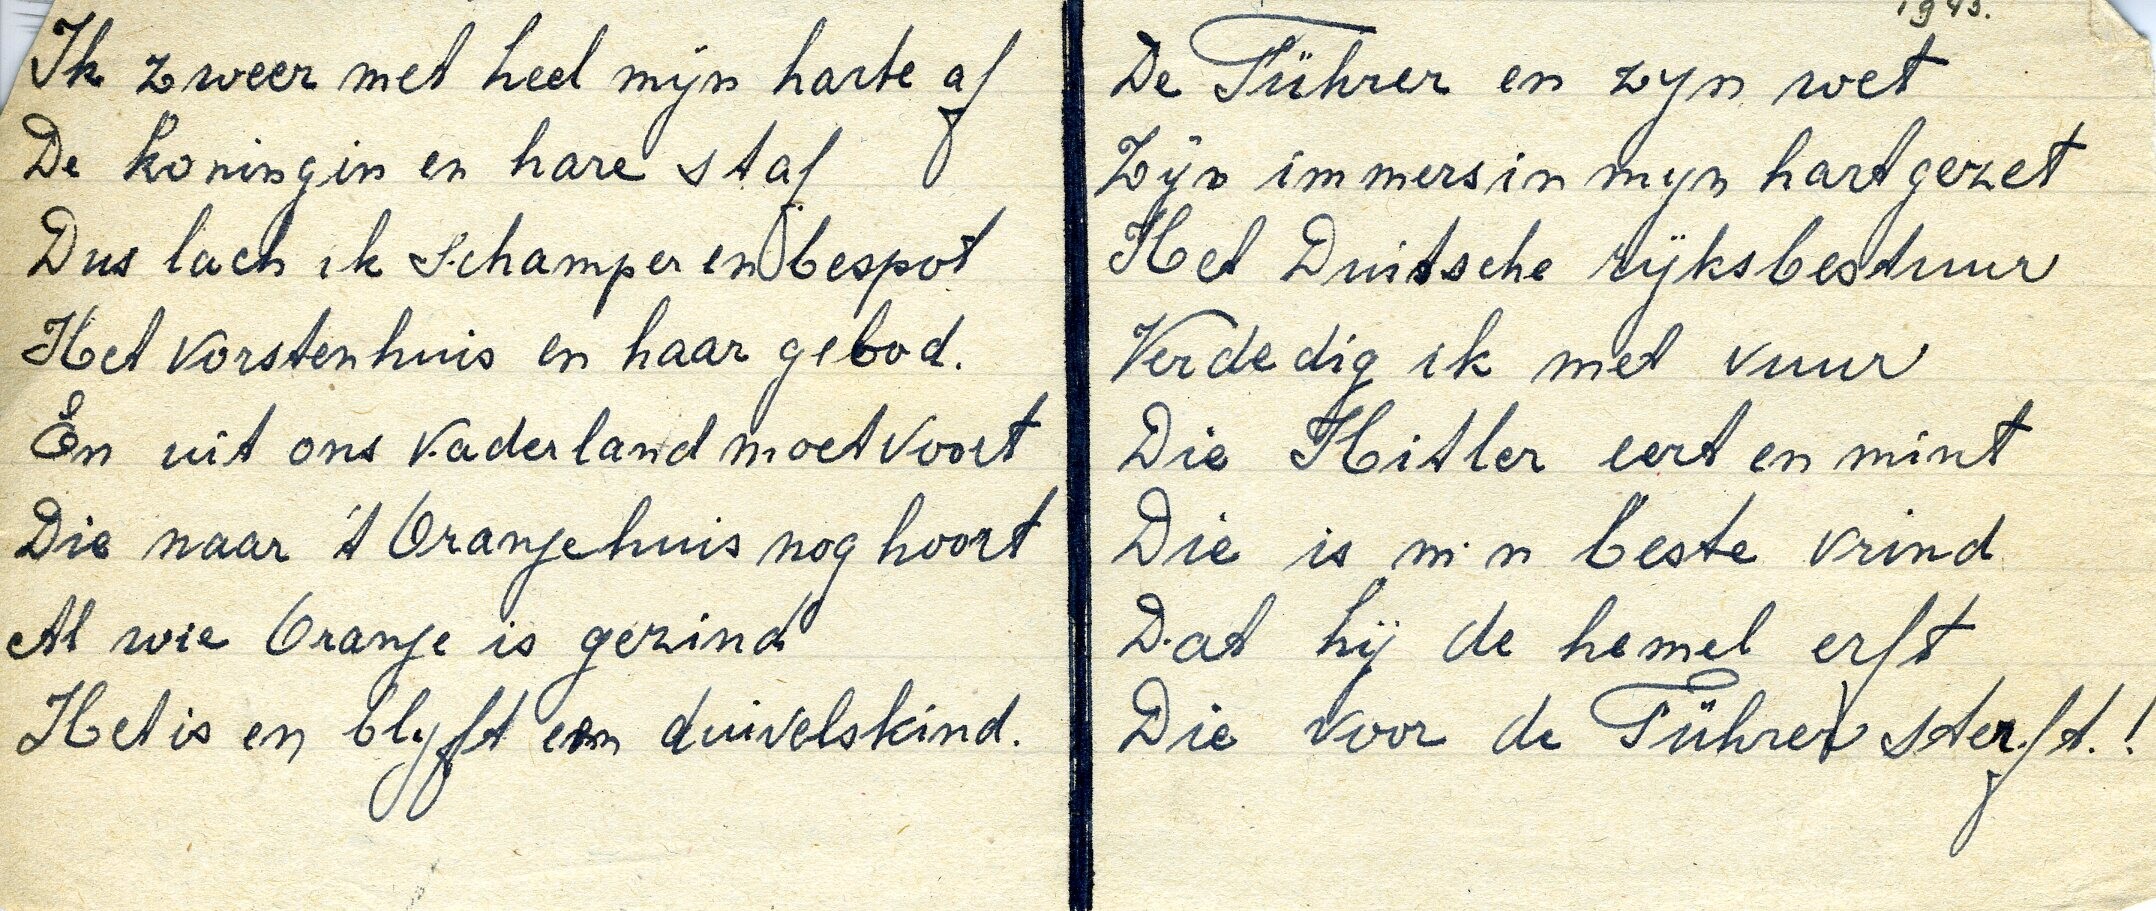 Ik zweer met heel mijn harte af
De koningin en hare staf
Dus lach ik schamper en bespot
Het vorstenhuis en haar gebod.
En uit ons vaderland moet voort
Die naar 't Oranjehuis nog hoort
Al wie Oranje is gezind
Het is en blyft een duivelskind.
De Führer en zyn wet
Zijn immers in myn hart gezet
Het Duitsche rijksbestuur
Verdedig ik met vuur
Die Hitler eert en mint
Die is m'n beste vrind
Dat hij de hemel erft
Die voor de Führer sterft.!